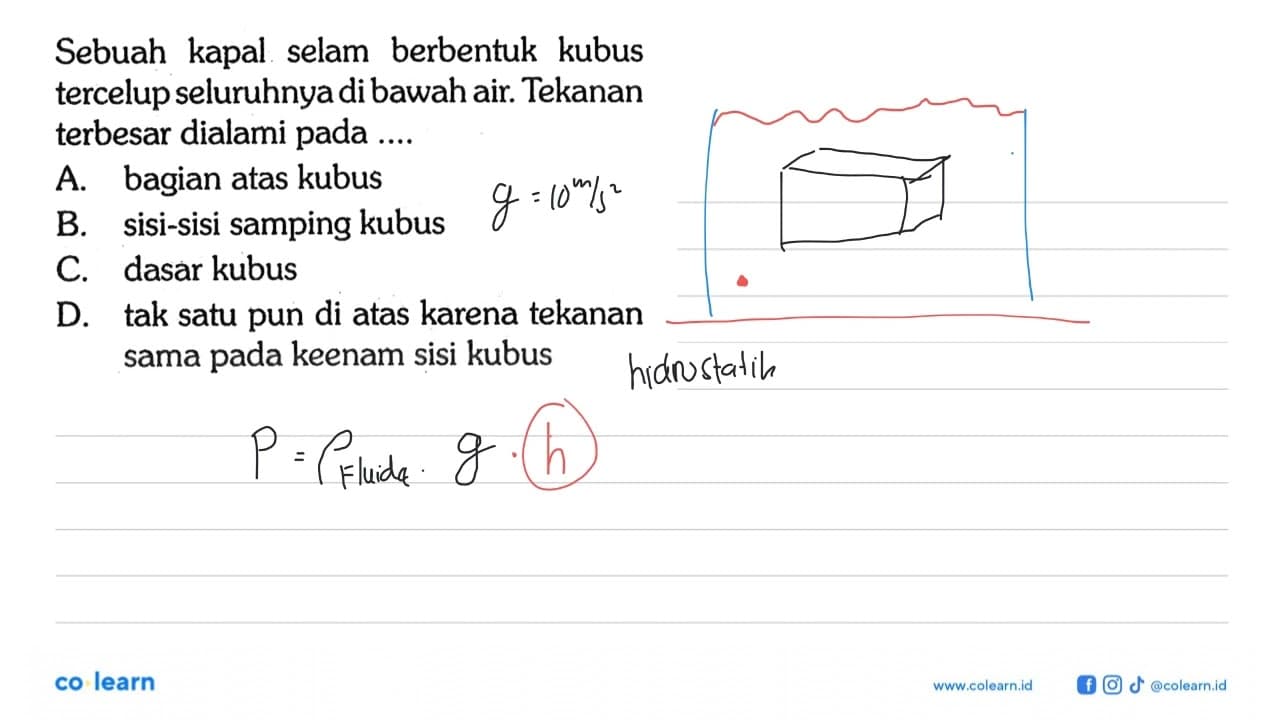 Sebuah kapal selam berbentuk kubus
tercelup seluruhnya di bawah air. Tekanan
terbesar dialami pada ....
A. bagian atas kubus
B. sisi-sisi samping kubus
C. dasar kubus
D. tak satu pun di atas karena tekanan
sama pada keenam sisi kubus
g = 10 m/s²
hidrostatik
P = ρ Fluida . g . h
co learn
www.colearn.id
@colearn.id